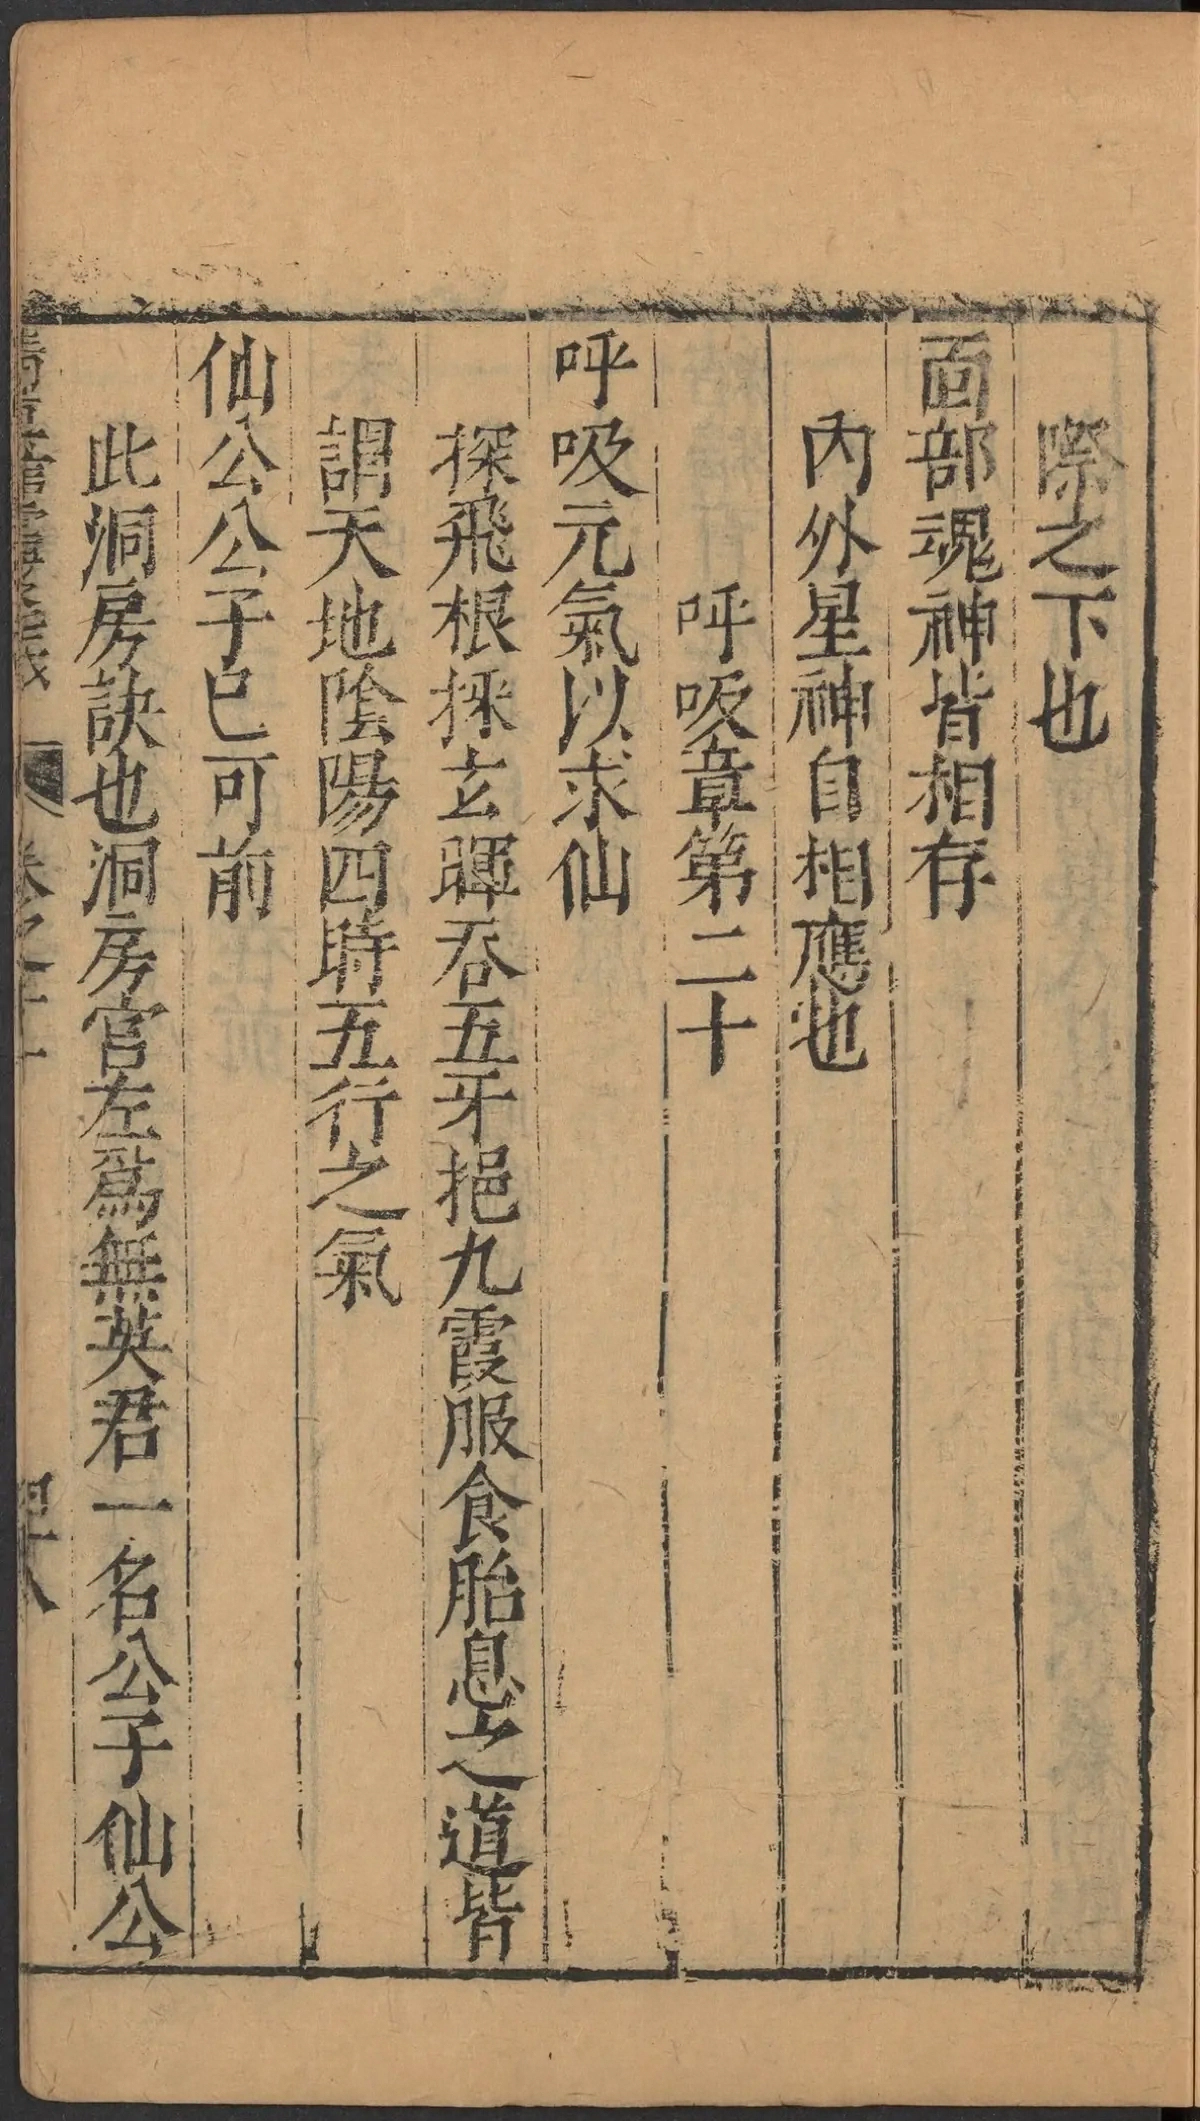 際之下也
面部魂神皆相存
內外星神自相應也
呼吸章第二十
呼吸元氣以求仙
採飛根採玄暉吞五牙挹九霞服食胎息之道皆
謂天地陰陽四時五行之氣
仙公公子已可前
此洞房訣也洞房宮左爲無英君一名公子仙公
卷之二十一
四十八